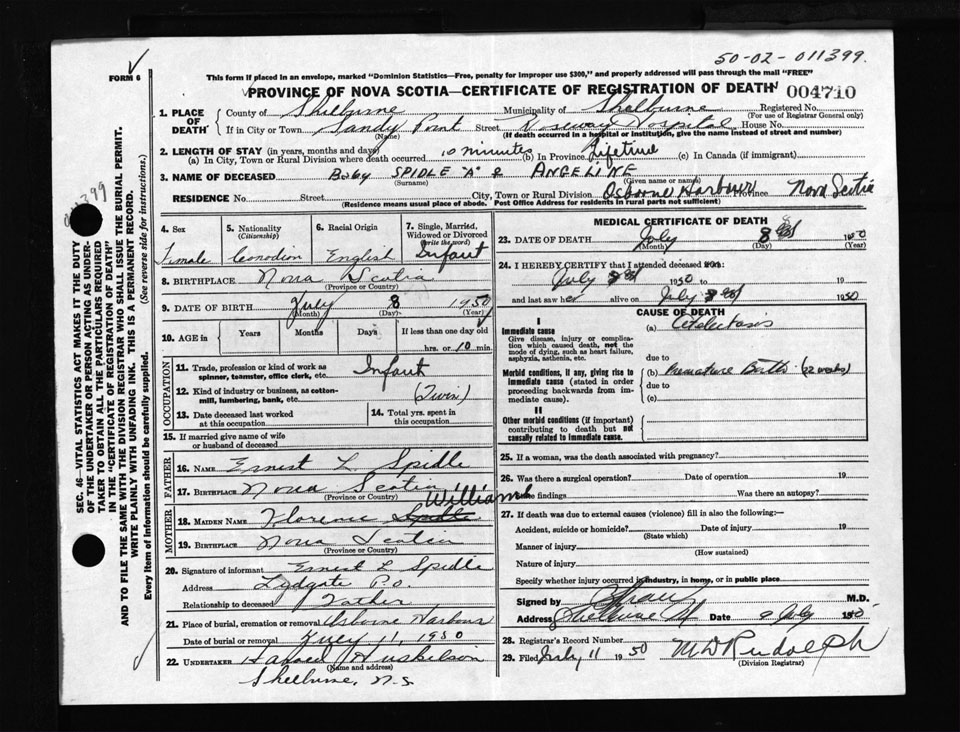 50-02-011399.
FORM 6
This form if placed in an envelope, marked "Dominion Statistics—Free, penalty for improper use $300," and properly addressed will pass through the mail "FREE"
PROVINCE OF NOVA SCOTIA—CERTIFICATE OF REGISTRATION OF DEATH
004710
1. PLACE OF DEATH County of Shelburne Municipality of Shelburne Registered No.
(For use of Registrar General only)
If in City or Town Sandy Point Street Roseway Hospital House No.
(Name) (If death occurred in a hospital or institution, give the name instead of street and number)
2. LENGTH OF STAY (in years, months and days)
(a) In City, Town or Rural Division where death occurred 10 minutes (b) In Province Lifetime (c) In Canada (if immigrant)
3. NAME OF DECEASED Baby SPIDLE "A" & ANGELINE
(Surname) (Given name or names)
RESIDENCE No. Street City, Town or Rural Division Osborne Harbour Province Nova Scotia
(Residence means usual place of abode. Post Office Address for residents in rural parts not sufficient)
4. Sex Female
5. Nationality (Citizenship) Canadian
6. Racial Origin English
7. Single, Married, Widowed or Divorced (write the word) Infant
8. BIRTHPLACE Nova Scotia
(Province or Country)
9. DATE OF BIRTH July 8 1950
(Month) (Day) (Year)
10. AGE in Years Months Days If less than one day old
hrs. or 10 min.
OCCUPATION
11. Trade, profession or kind of work as spinner, teamster, office clerk, etc. Infant
12. Kind of industry or business, as cotton-mill, lumbering, bank, etc. (Twin)
13. Date deceased last worked at this occupation
14. Total yrs. spent in this occupation
15. If married give name of wife or husband of deceased
FATHER
16. NAME Ernest L. Spidle
17. BIRTHPLACE Nova Scotia
(Province or Country)
MOTHER
Williams
18. MAIDEN NAME Florence Spidle
19. BIRTHPLACE Nova Scotia
(Province or Country)
20. Signature of informant Ernest L Spidle
Address Lydgate P.O.
Relationship to deceased Father
21. Place of burial, cremation or removal Osborne Harbour
Date of burial or removal July 11, 1950
22. UNDERTAKER Huskilson
(Name and address)
Shelburne, N.S.
MEDICAL CERTIFICATE OF DEATH
23. DATE OF DEATH July 8 1950
(Month) (Day) (Year)
24. I HEREBY CERTIFY that I attended deceased
July 8 1950 to 19
and last saw her alive on July 8 1950
CAUSE OF DEATH
I
Immediate cause
Give disease, injury or complication which caused death, not the mode of dying, such as heart failure, asphyxia, asthenia, etc.
(a) Atelectasis
due to
Morbid conditions, if any, giving rise to immediate cause (stated in order proceeding backwards from immediate cause).
(b) Premature Birth (22 weeks)
due to
(c)
II
Other morbid conditions (if important) contributing to death but not causally related to immediate cause.
25. If a woman, was the death associated with pregnancy?
26. Was there a surgical operation? Date of operation 19
State findings Was there an autopsy?
27. If death was due to external causes (violence) fill in also the following:—
Accident, suicide or homicide? Date of injury 19
(State which)
Manner of injury
(How sustained)
Nature of injury
Specify whether injury occurred in industry, in home, or in public place
Signed by M.D.
Address Shelburne Date 9 July 1950
28. Registrar's Record Number
29. Filed July 11 1950 M D Rudolph
(Division Registrar)
SEC. 46—VITAL STATISTICS ACT MAKES IT THE DUTY OF THE UNDERTAKER OR PERSON ACTING AS UNDERTAKER TO OBTAIN ALL THE PARTICULARS REQUIRED IN THE "CERTIFICATE OF REGISTRATION OF DEATH" AND TO FILE THE SAME WITH THE DIVISION REGISTRAR WHO SHALL ISSUE THE BURIAL PERMIT.
WRITE PLAINLY WITH UNFADING INK. THIS IS A PERMANENT RECORD.
Every item of information should be carefully supplied. (See reverse side for instructions.)